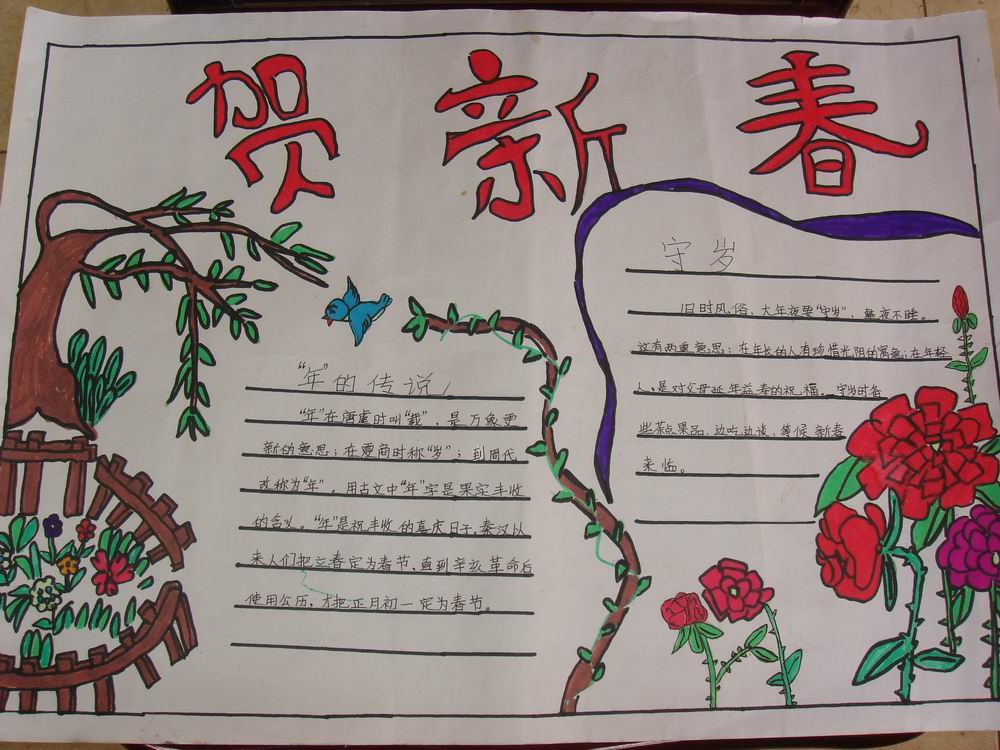 贺新春
“年”的传说
“年”在唐虞时叫“载”，是万象更
新的意思；在夏商时称“岁”；到周代
改称为“年”。用古文中“年”字是果定丰收
的含义。“年”是祝丰收的喜庆日子，秦汉以
来人们把立春定为春节，直到辛亥革命后
使用公历，才把正月初一定为春节。
守岁
旧时风俗，大年夜要“守岁”，整夜不睡。
这有两重意思：在年长的人有珍惜光阴的寓意；在年轻
人，是对父母延年益寿的祝福。守岁时备
些茶点果品，边吃边谈，等候新春
来临。